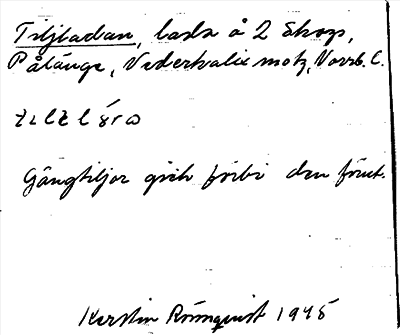 Tiljladan, lada å 2 Skog,
Pålänge, Nederkalix motz, Norrb. C.
Gångtiljor gick förbi den förut.
Kerstin Rönnquist 1945